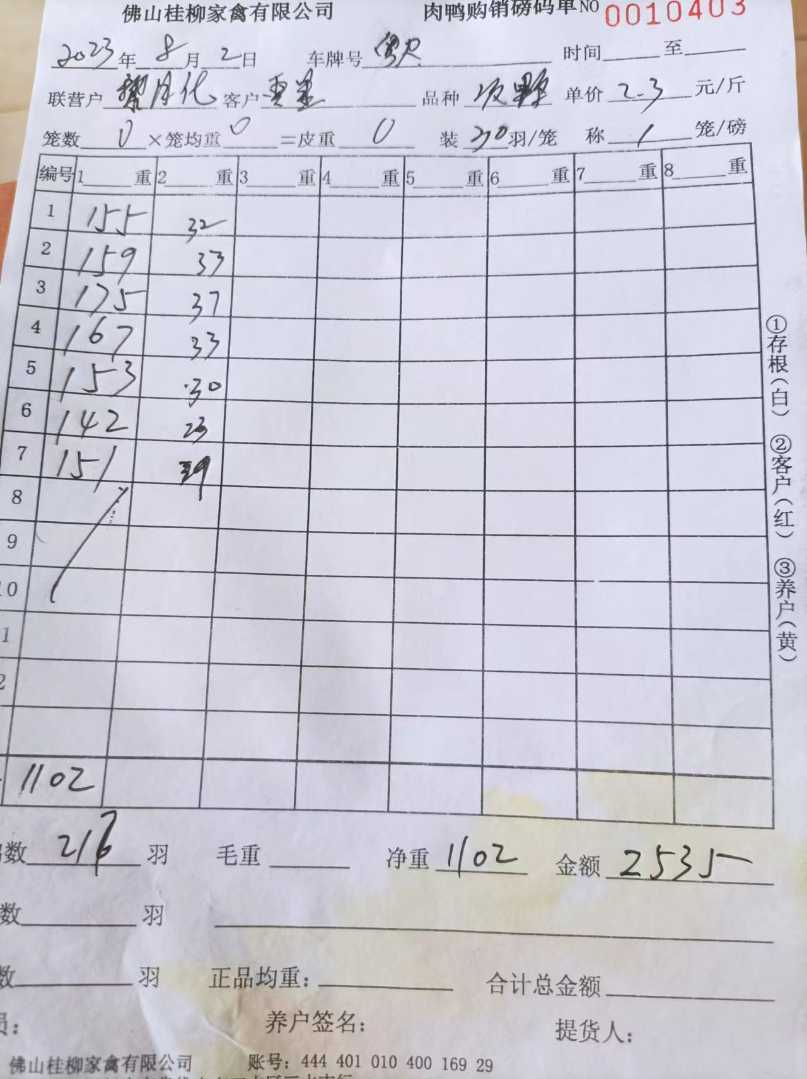 佛山桂柳家禽有限公司 肉鸭购销磅码单NO 0010403
2023年 8月 2日 车牌号 时间 至
联营户 客户 品种 单价 2.3 元/斤
笼数 0 ×笼均重 0 =皮重 0 装 30 羽/笼 称 1 笼/磅
编号 1 重 2 重 3 重 4 重 5 重 6 重 7 重 8 重
1 155 32
2 159 33
3 175 37
4 167 33
5 153 30
6 142 23
7 151
8
9
10
1
2
1102
数 216 羽 毛重 净重 1102 金额 2535
数 羽
数 羽 正品均重: 合计总金额
员: 养户签名: 提货人:
佛山桂柳家禽有限公司 账号: 444 401 010 400 169 29
①存根(白) ②客户(红) ③养户(黄)